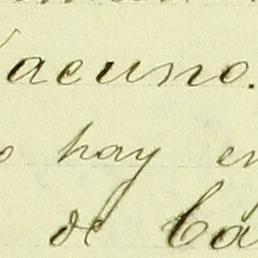 Vacuno.
o hay en
de Ca